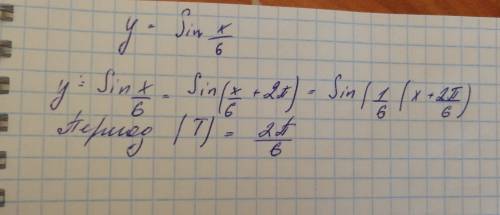 y = Sin x/6
y = Sin x/6 = Sin(x/6 + 2π) = Sin(1/6 (x + 2π/6)
Период (T) = 2π/6